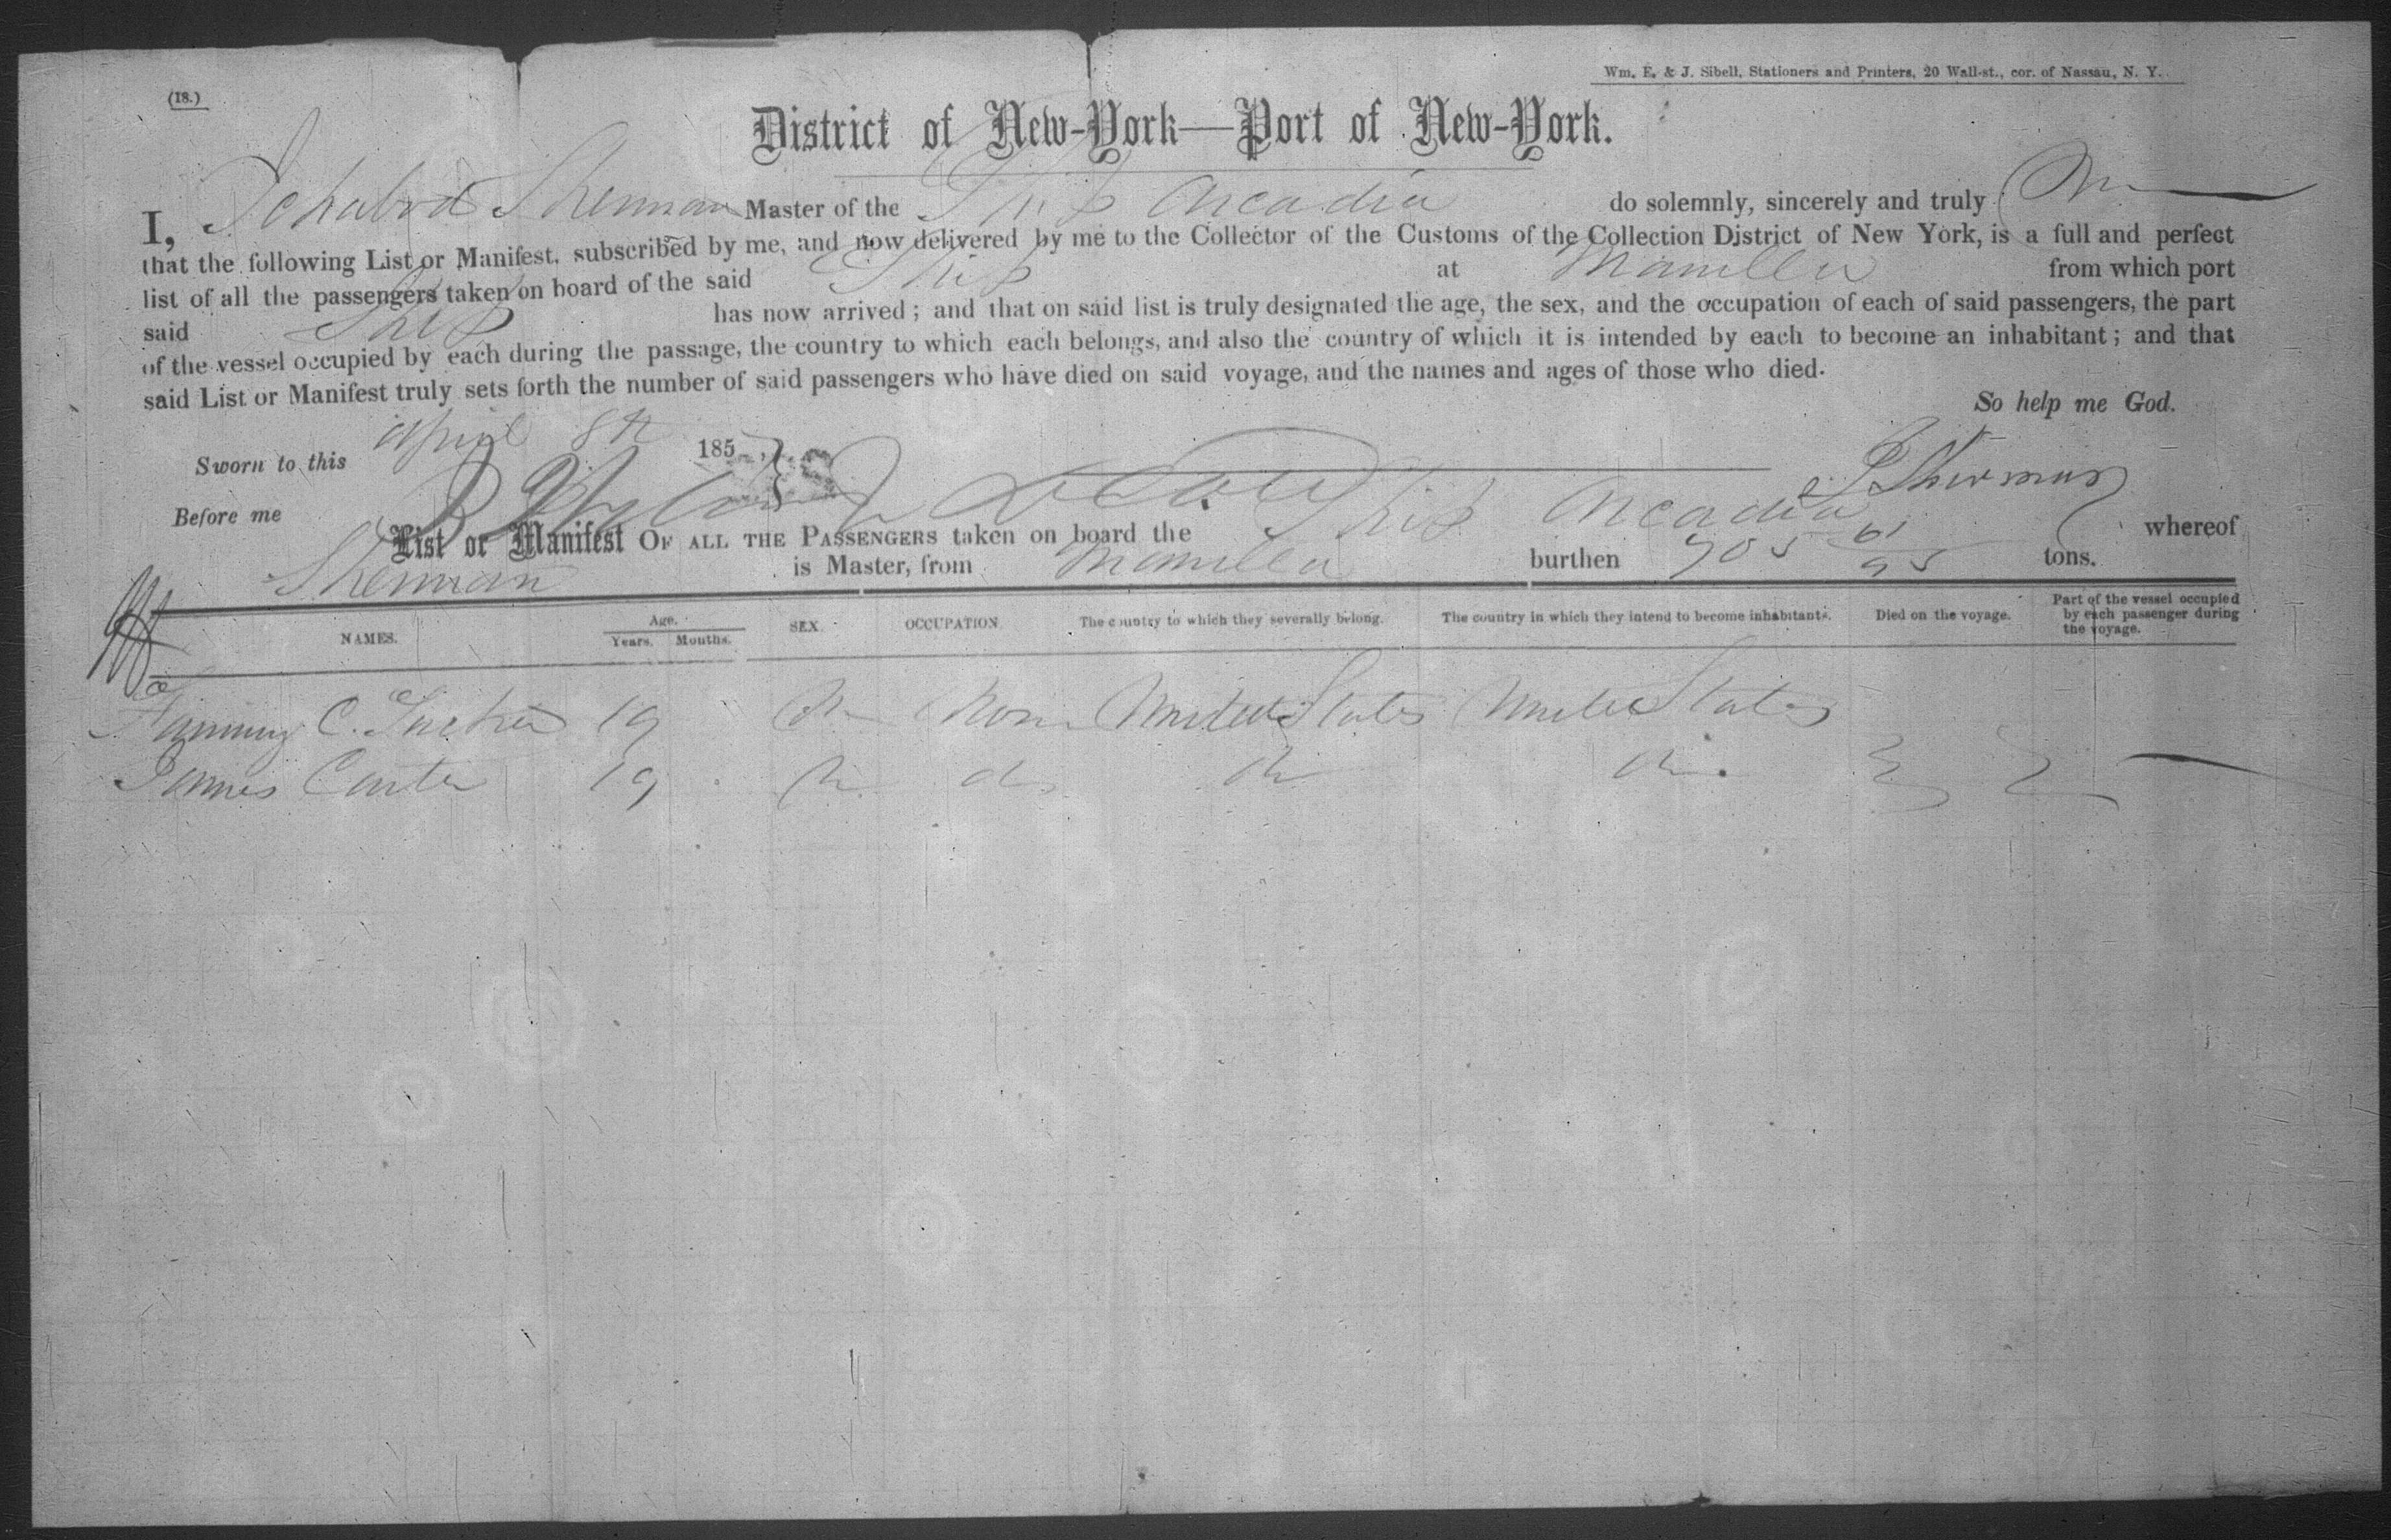 Wm. E. & J. Sibell, Stationers and Printers, 20 Wall-st., cor. of Nassau, N. Y.
(18.)
District of New-York—Port of New-York.
I, Ichabod Sherman Master of the Ship Arcadia do solemnly, sincerely and truly
that the following List or Manifest, subscribed by me, and now delivered by me to the Collector of the Customs of the Collection District of New York, is a full and perfect
list of all the passengers taken on board of the said Ship at Manilla from which port
said Ship has now arrived; and that on said list is truly designated the age, the sex, and the occupation of each of said passengers, the part
of the vessel occupied by each during the passage, the country to which each belongs, and also the country of which it is intended by each to become an inhabitant; and that
said List or Manifest truly sets forth the number of said passengers who have died on said voyage, and the names and ages of those who died.
So help me God.
Sworn to this April 8th 185
Before me
I Sherman
List or Manifest OF ALL THE PASSENGERS taken on board the Ship Arcadia whereof
Sherman is Master, from Manilla burthen 705 61/95 tons.
NAMES. Age. Years. Months. SEX. OCCUPATION. The country to which they severally belong. The country in which they intend to become inhabitants. Died on the voyage. Part of the vessel occupied by each passenger during the voyage.
C. 19 United States United States
James Carter 19 do